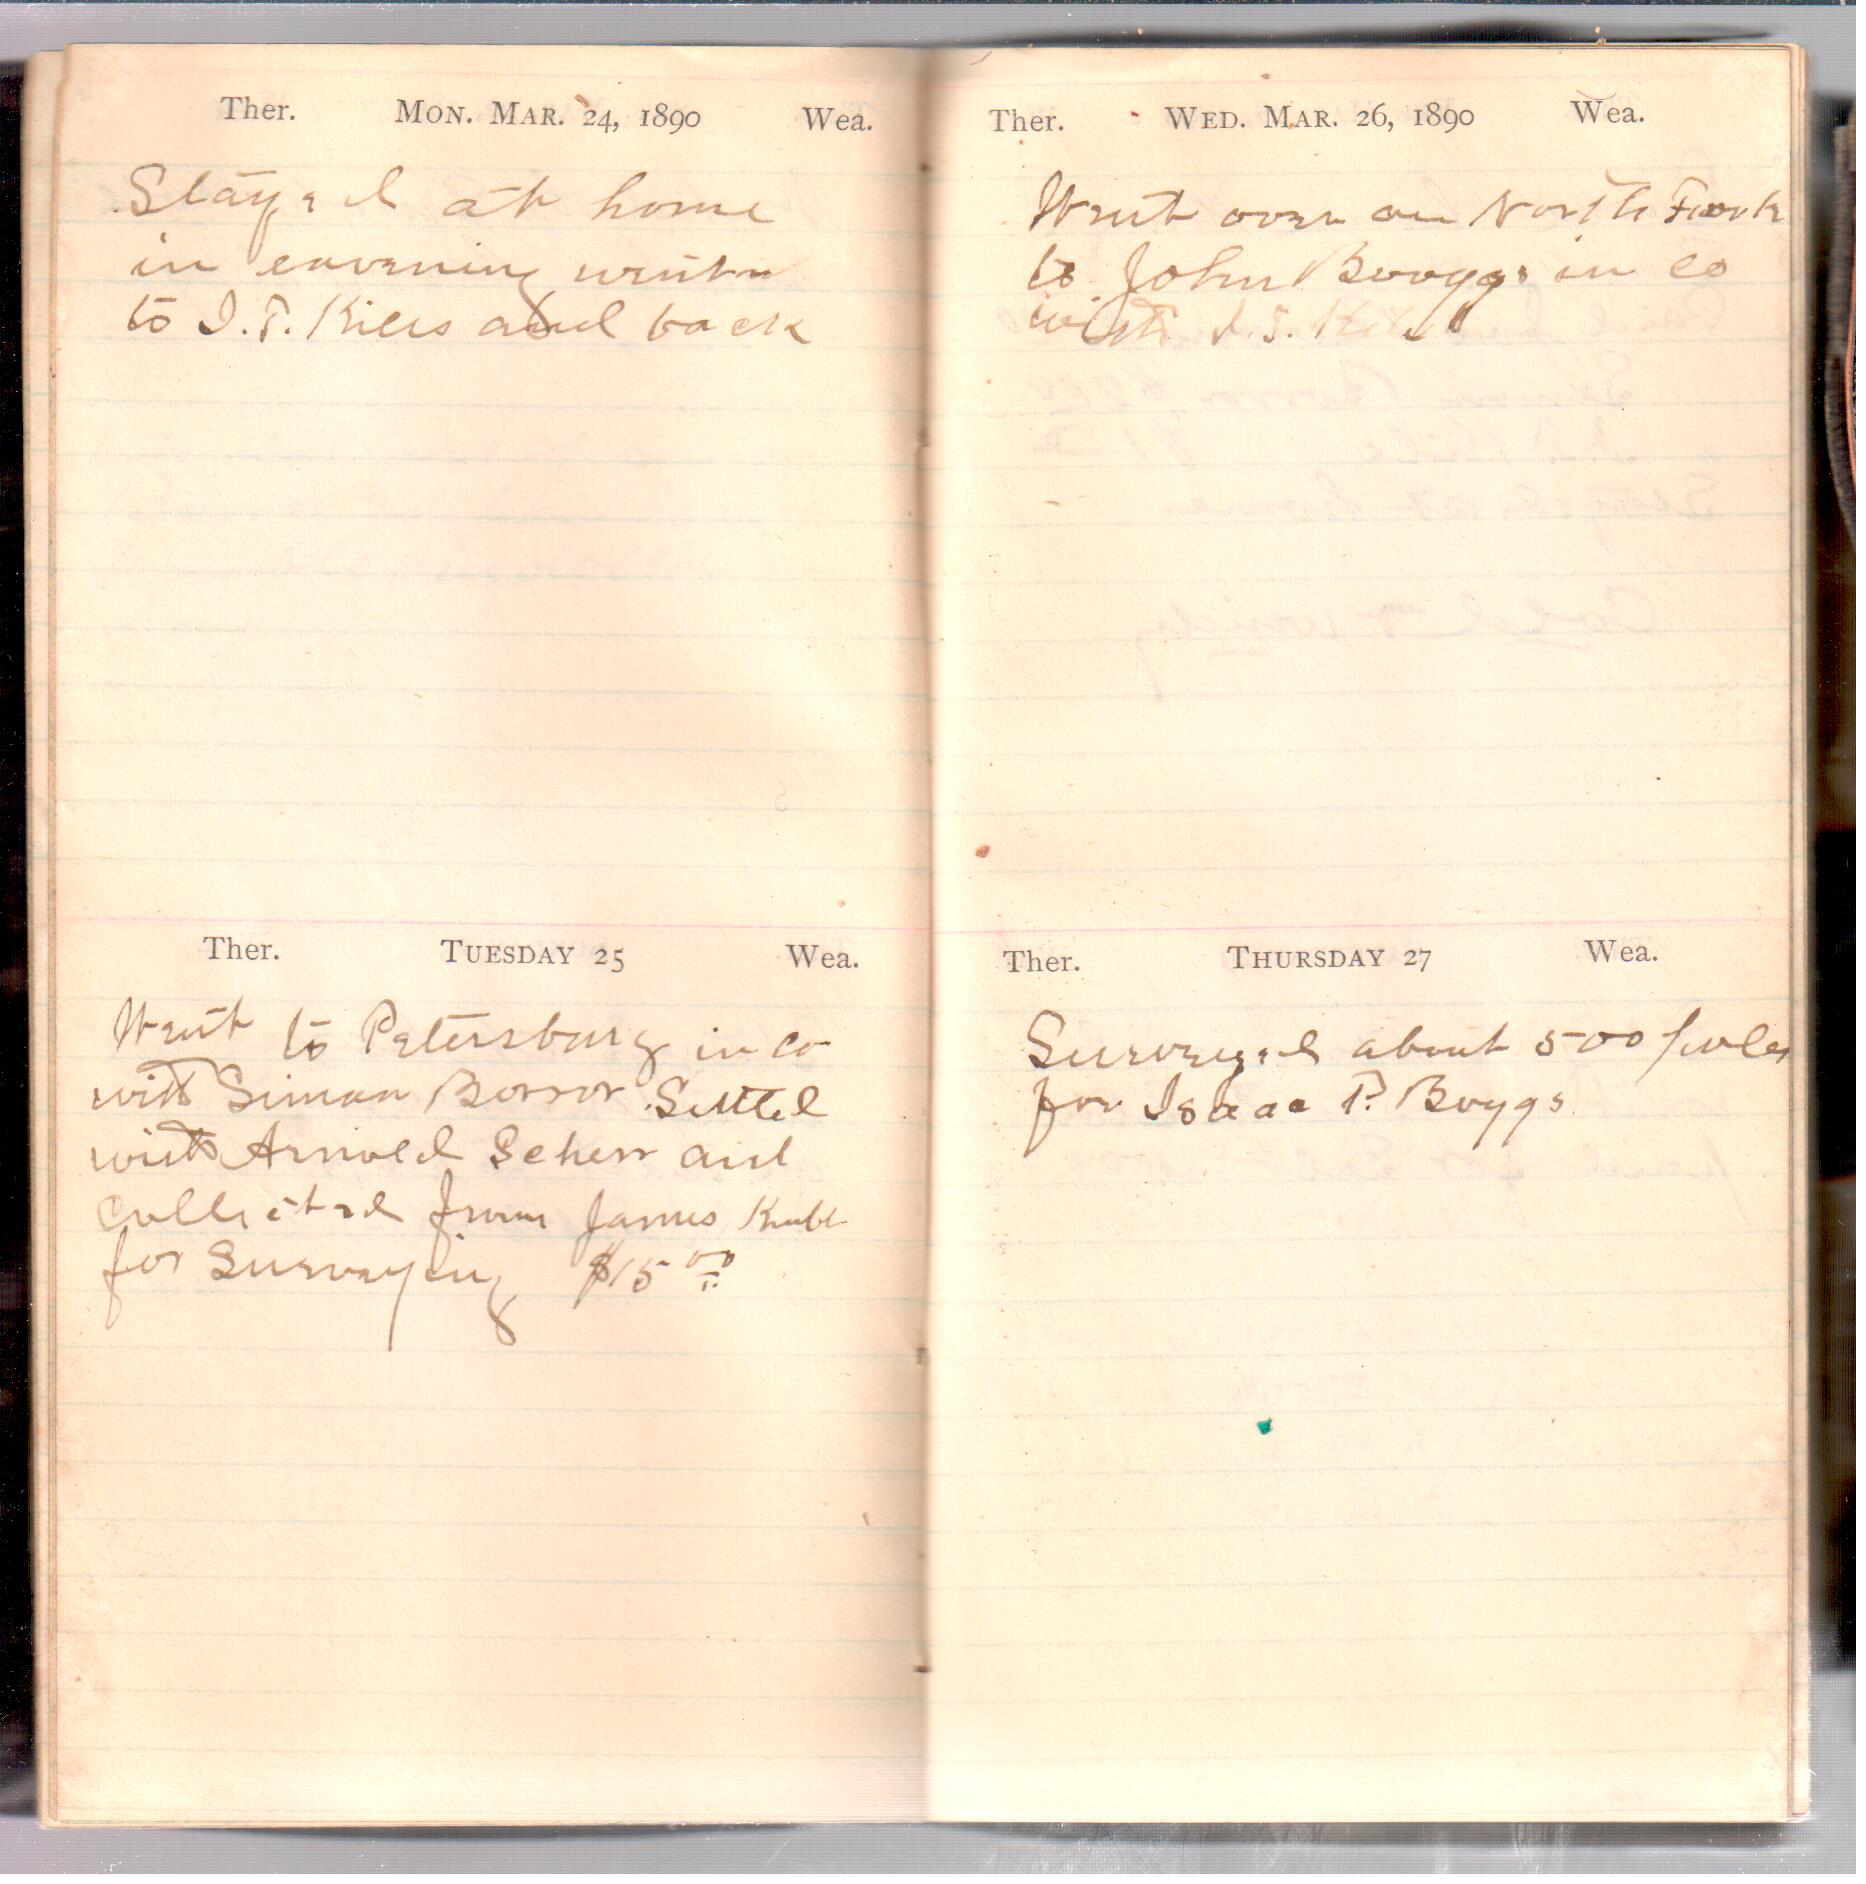 Ther. MON. MAR. 24, 1890 Wea.
Stayed at home
in eavening went
to I. S. Kiles and back
Ther. TUESDAY 25 Wea.
Went to Petersburg in co
with Siman Borror Settel
with Arnold Scherr and
Collected from James
for Surveying $15 00
Ther. WED. MAR. 26, 1890 Wea.
Went over on North Fork
to John Boggs in co
with I. S.
Ther. THURSDAY 27 Wea.
Surveyed about 500 poles
for Isaac P. Boggs